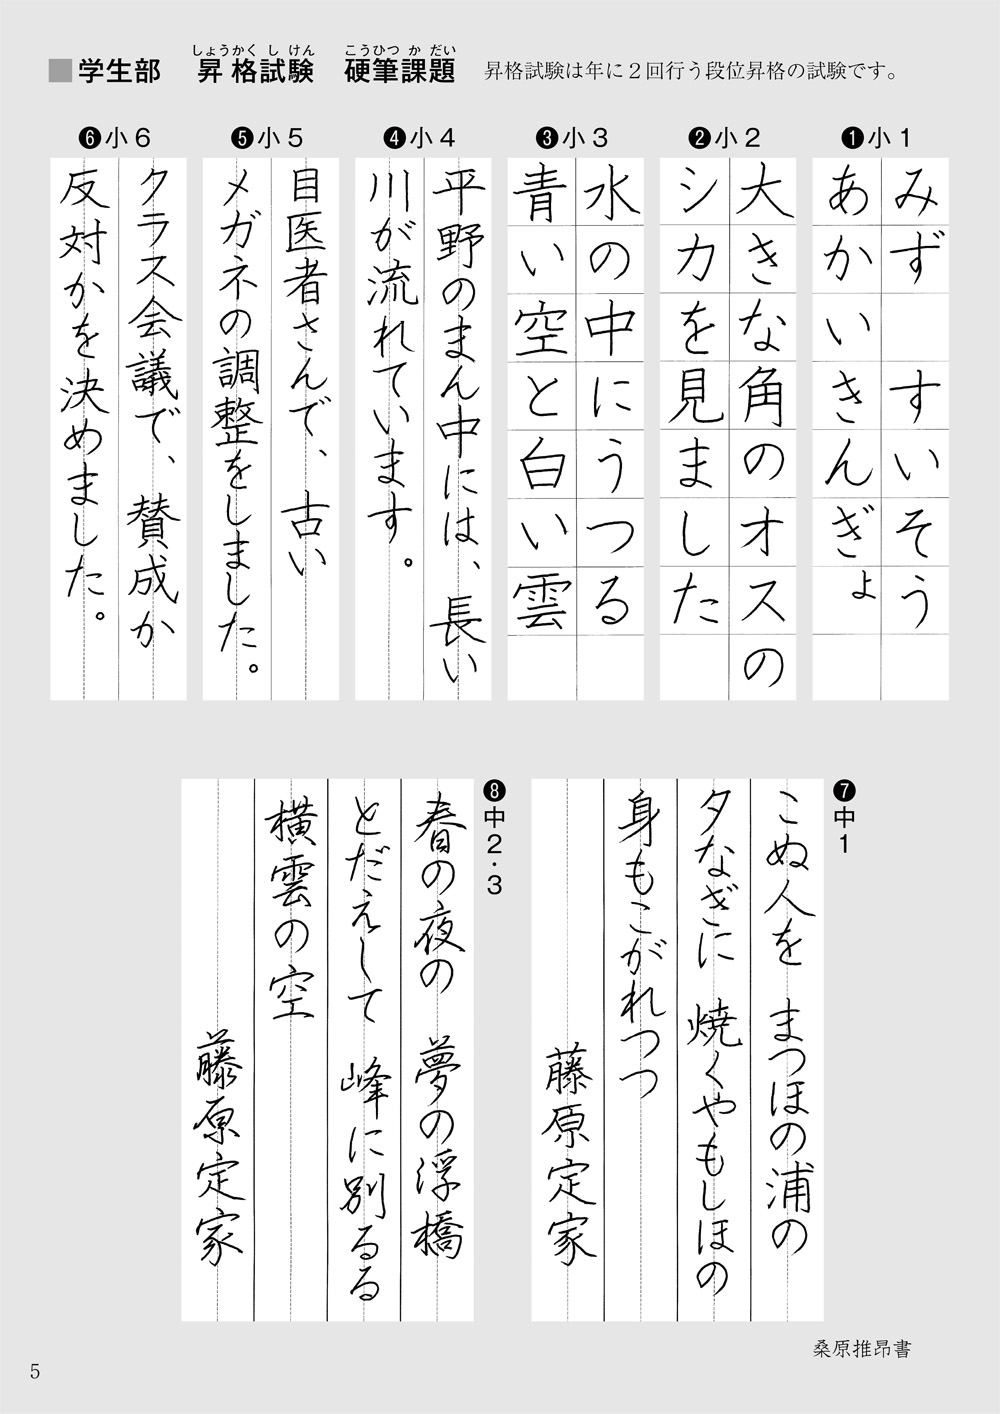 ■学生部　昇格試験　硬筆課題　昇格試験は年に２回行う段位昇格の試験です。
しょうかくしけん　こうひつかだい
❶小１
みず　すいそう
あかい　きんぎょ
❷小２
大きな角のオスの
シカを見ました
❸小３
水の中にうつる
青い空と白い雲
❹小４
平野のまん中には、長い
川が流れています。
❺小５
目医者さんで、古い
メガネの調整をしました。
❻小６
クラス会議で、賛成か
反対かを決めました。
❼中１
こぬ人を　まつほの浦の
夕なぎに　焼くやもしほの
身もこがれつつ
藤原定家
❽中２・３
春の夜の　夢の浮橋
とだえして　峰に別るる
横雲の空
藤原定家
桑原推昂書
5